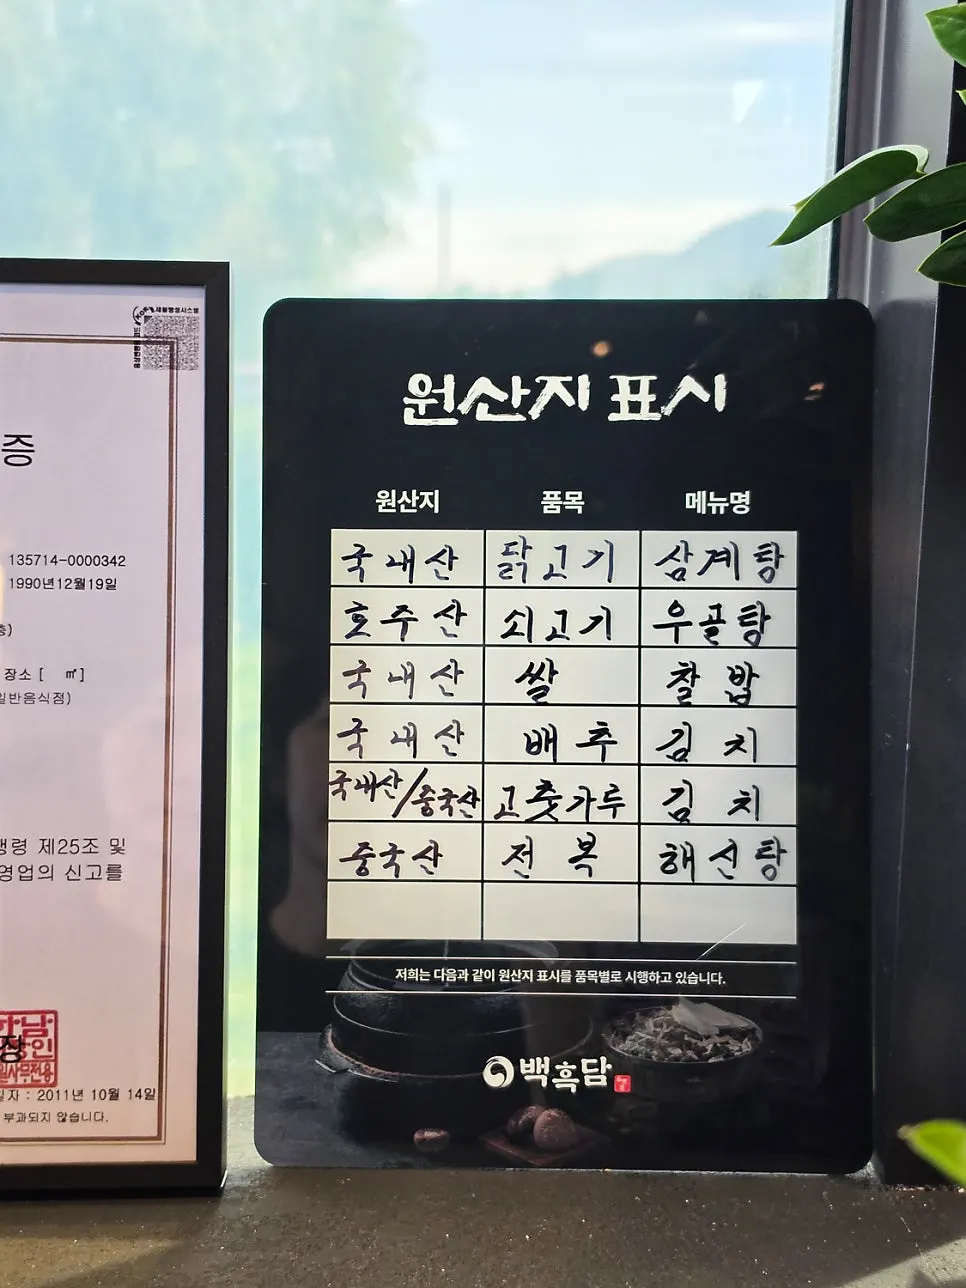 제품병생시스템
증
135714-0000342
1990년12월19일
층)
장소 [ ㎡]
일반음식점)
행령 제25조 및
영업의 신고를
하남
장
인
일자 : 2011년 10월 14일
부과되지 않습니다.
원산지 표시
원산지 품목 메뉴명
국내산 닭고기 삼계탕
호주산 쇠고기 우골탕
국내산 쌀 찰밥
국내산 배추 김치
국내산/중국산 고춧가루 김치
중국산 전복 해신탕
저희는 다음과 같이 원산지 표시를 품목별로 시행하고 있습니다.
백흑담